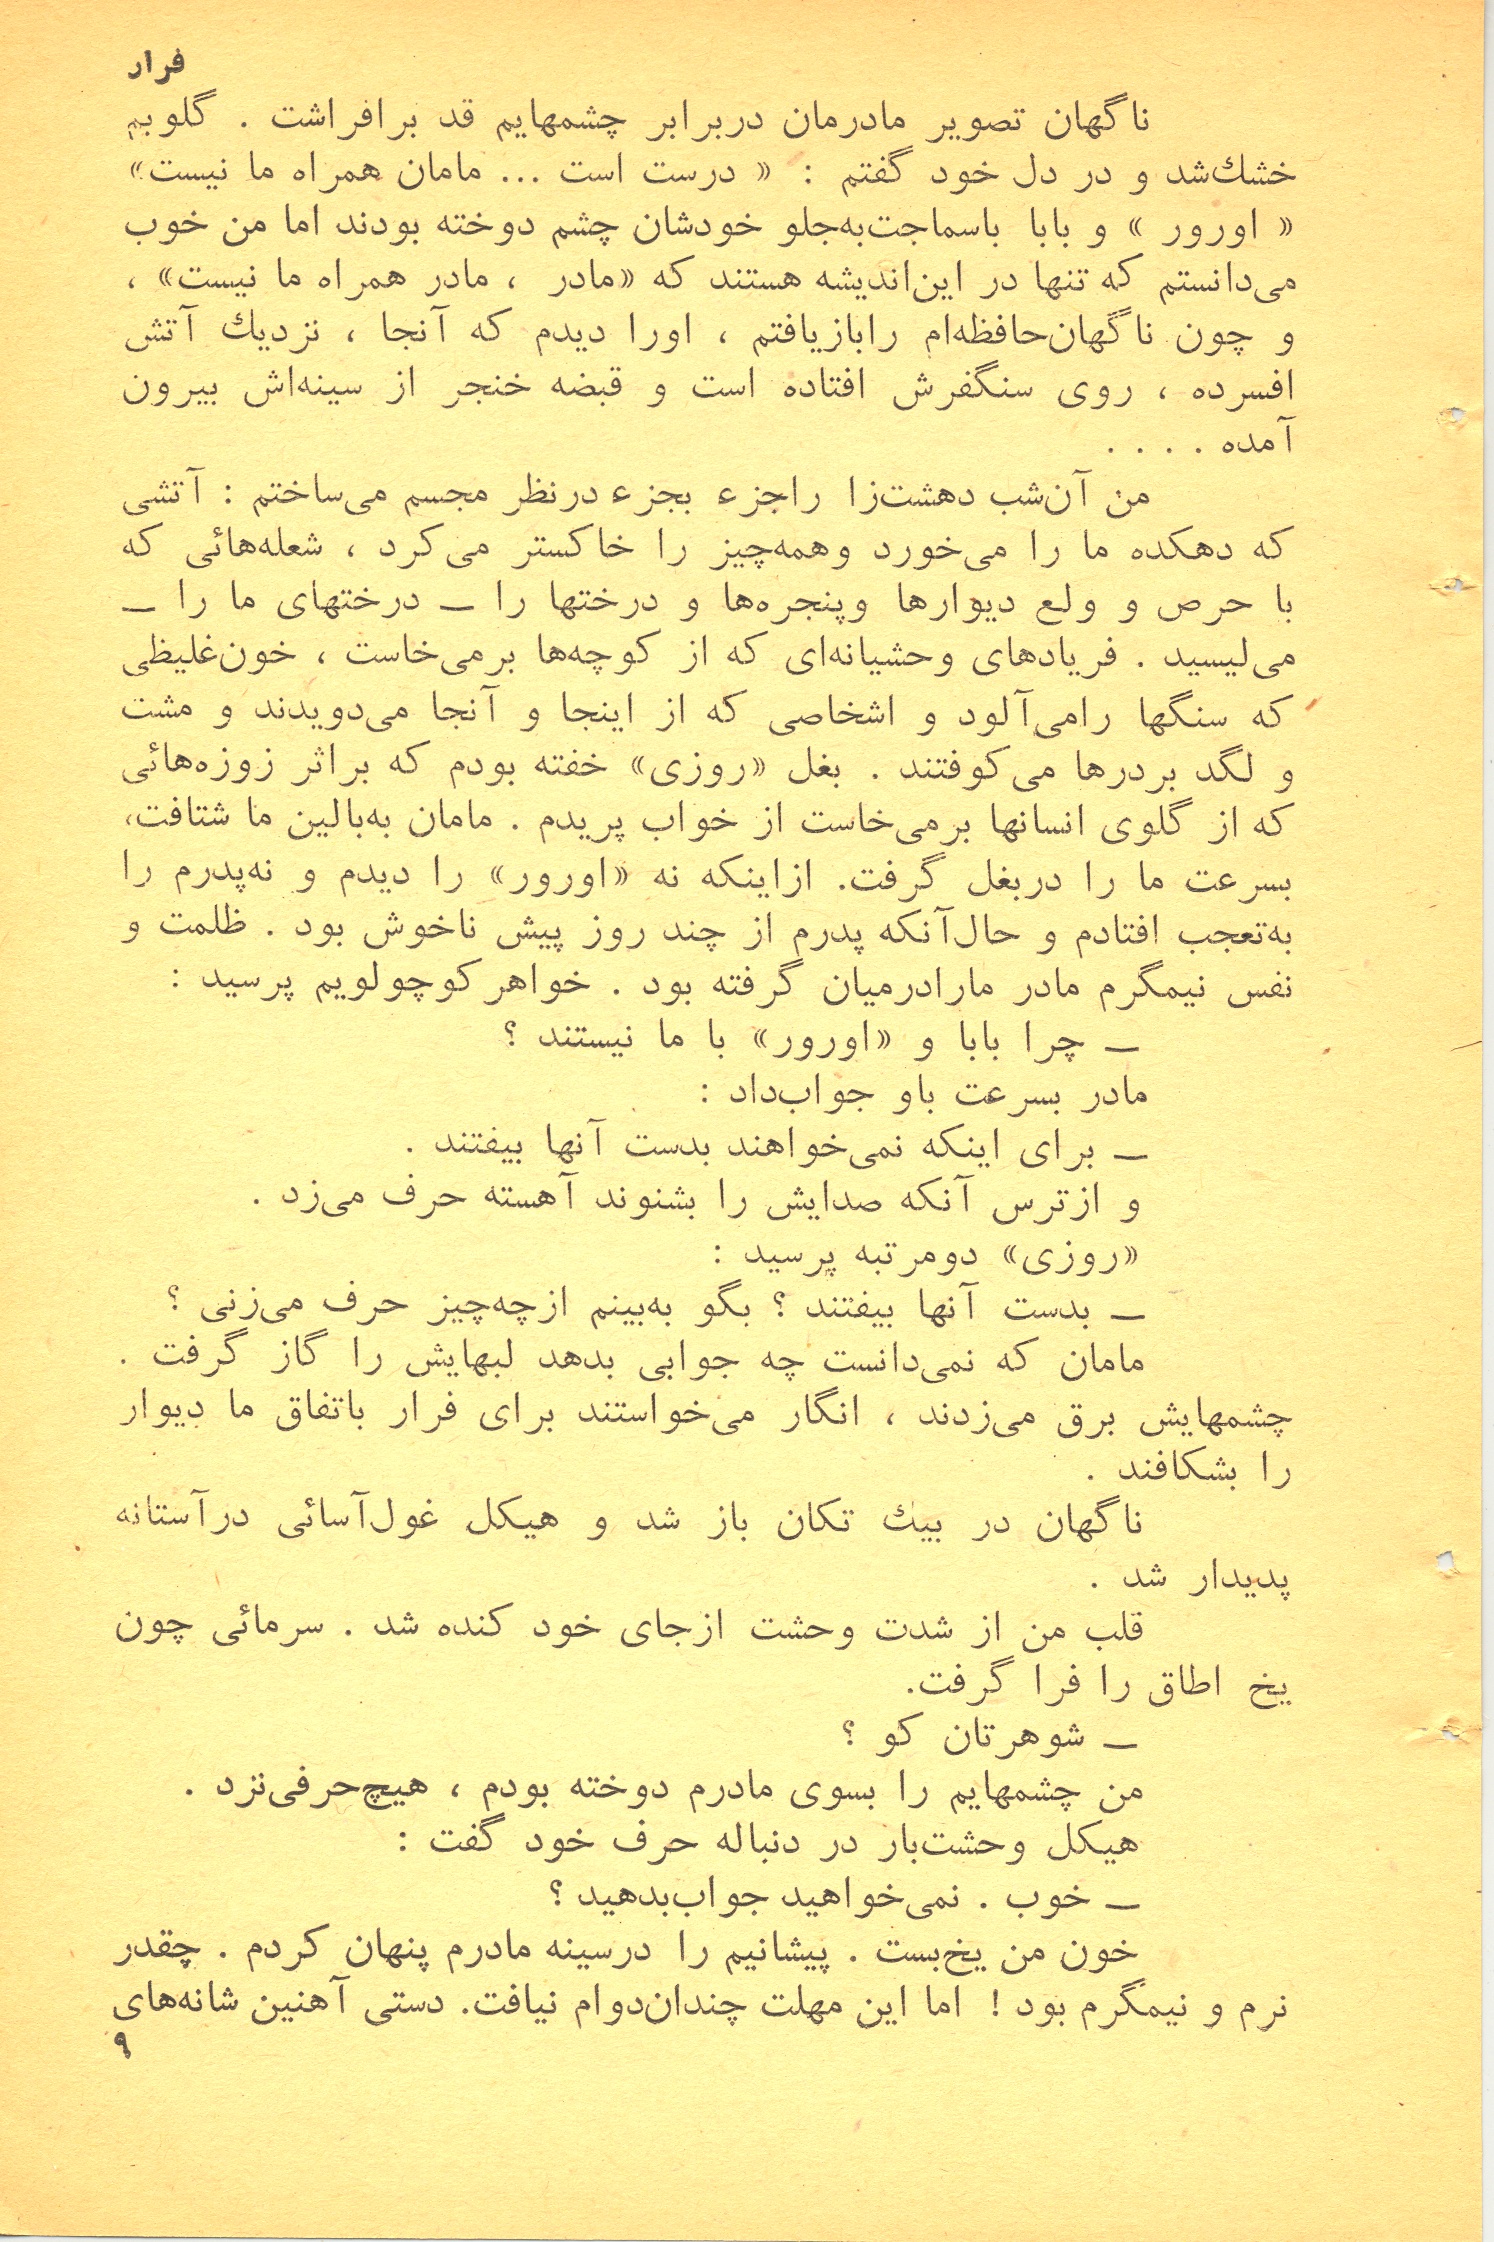 فرار
ناگهان تصویر مادرمان دربرابر چشمهایم قد برافراشت . گلویم
خشك‌شد و در دل خود گفتم : « درست است ... مامان همراه ما نیست»
« اورور » و بابا باسماجت‌به‌جلو خودشان چشم دوخته بودند اما من خوب
می‌دانستم که تنها در این‌اندیشه هستند که «مادر ، مادر همراه ما نیست» ،
و چون ناگهان‌حافظه‌ام رابازیافتم ، اورا دیدم که آنجا ، نزدیك آتش
افسرده ، روی سنگفرش افتاده است و قبضه خنجر از سینه‌اش بیرون
آمده . . . .
من آن‌شب دهشت‌زا راجزء بجزء درنظر مجسم می‌ساختم : آتشی
که دهکده ما را می‌خورد وهمه‌چیز را خاکستر می‌کرد ، شعله‌هائی که
با حرص و ولع دیوارها وپنجره‌ها و درختها را — درختهای ما را —
می‌لیسید . فریادهای وحشیانه‌ای که از کوچه‌ها برمی‌خاست ، خون‌غلیظی
که سنگها رامی‌آلود و اشخاصی که از اینجا و آنجا می‌دویدند و مشت
و لگد بردرها می‌کوفتند . بغل «روزی» خفته بودم که براثر زوزه‌هائی
که از گلوی انسانها برمی‌خاست از خواب پریدم . مامان به‌بالین ما شتافت،
بسرعت ما را دربغل گرفت. ازاینکه نه «اورور» را دیدم و نه‌پدرم را
به‌تعجب افتادم و حال‌آنکه پدرم از چند روز پیش ناخوش بود . ظلمت و
نفس نیمگرم مادر مارادرمیان گرفته بود . خواهرکوچولویم پرسید :
— چرا بابا و «اورور» با ما نیستند ؟
مادر بسرعت باو جواب‌داد :
— برای اینکه نمی‌خواهند بدست آنها بیفتند .
و ازترس آنکه صدایش را بشنوند آهسته حرف می‌زد .
«روزی» دومرتبه پرسید :
— بدست آنها بیفتند ؟ بگو به‌بینم ازچه‌چیز حرف می‌زنی ؟
مامان که نمی‌دانست چه جوابی بدهد لبهایش را گاز گرفت .
چشمهایش برق می‌زدند ، انگار می‌خواستند برای فرار باتفاق ما دیوار
را بشکافند .
ناگهان در بیك تکان باز شد و هیکل غول‌آسائی درآستانه
پدیدار شد .
قلب من از شدت وحشت ازجای خود کنده شد . سرمائی چون
یخ اطاق را فرا گرفت.
— شوهرتان کو ؟
من چشمهایم را بسوی مادرم دوخته بودم ، هیچ‌حرفی‌نزد .
هیکل وحشت‌بار در دنباله حرف خود گفت :
— خوب . نمی‌خواهید جواب‌بدهید ؟
خون من یخ‌بست . پیشانیم را درسینه مادرم پنهان کردم . چقدر
نرم و نیمگرم بود ! اما این مهلت چندان‌دوام نیافت. دستی آهنین شانه‌های
۹